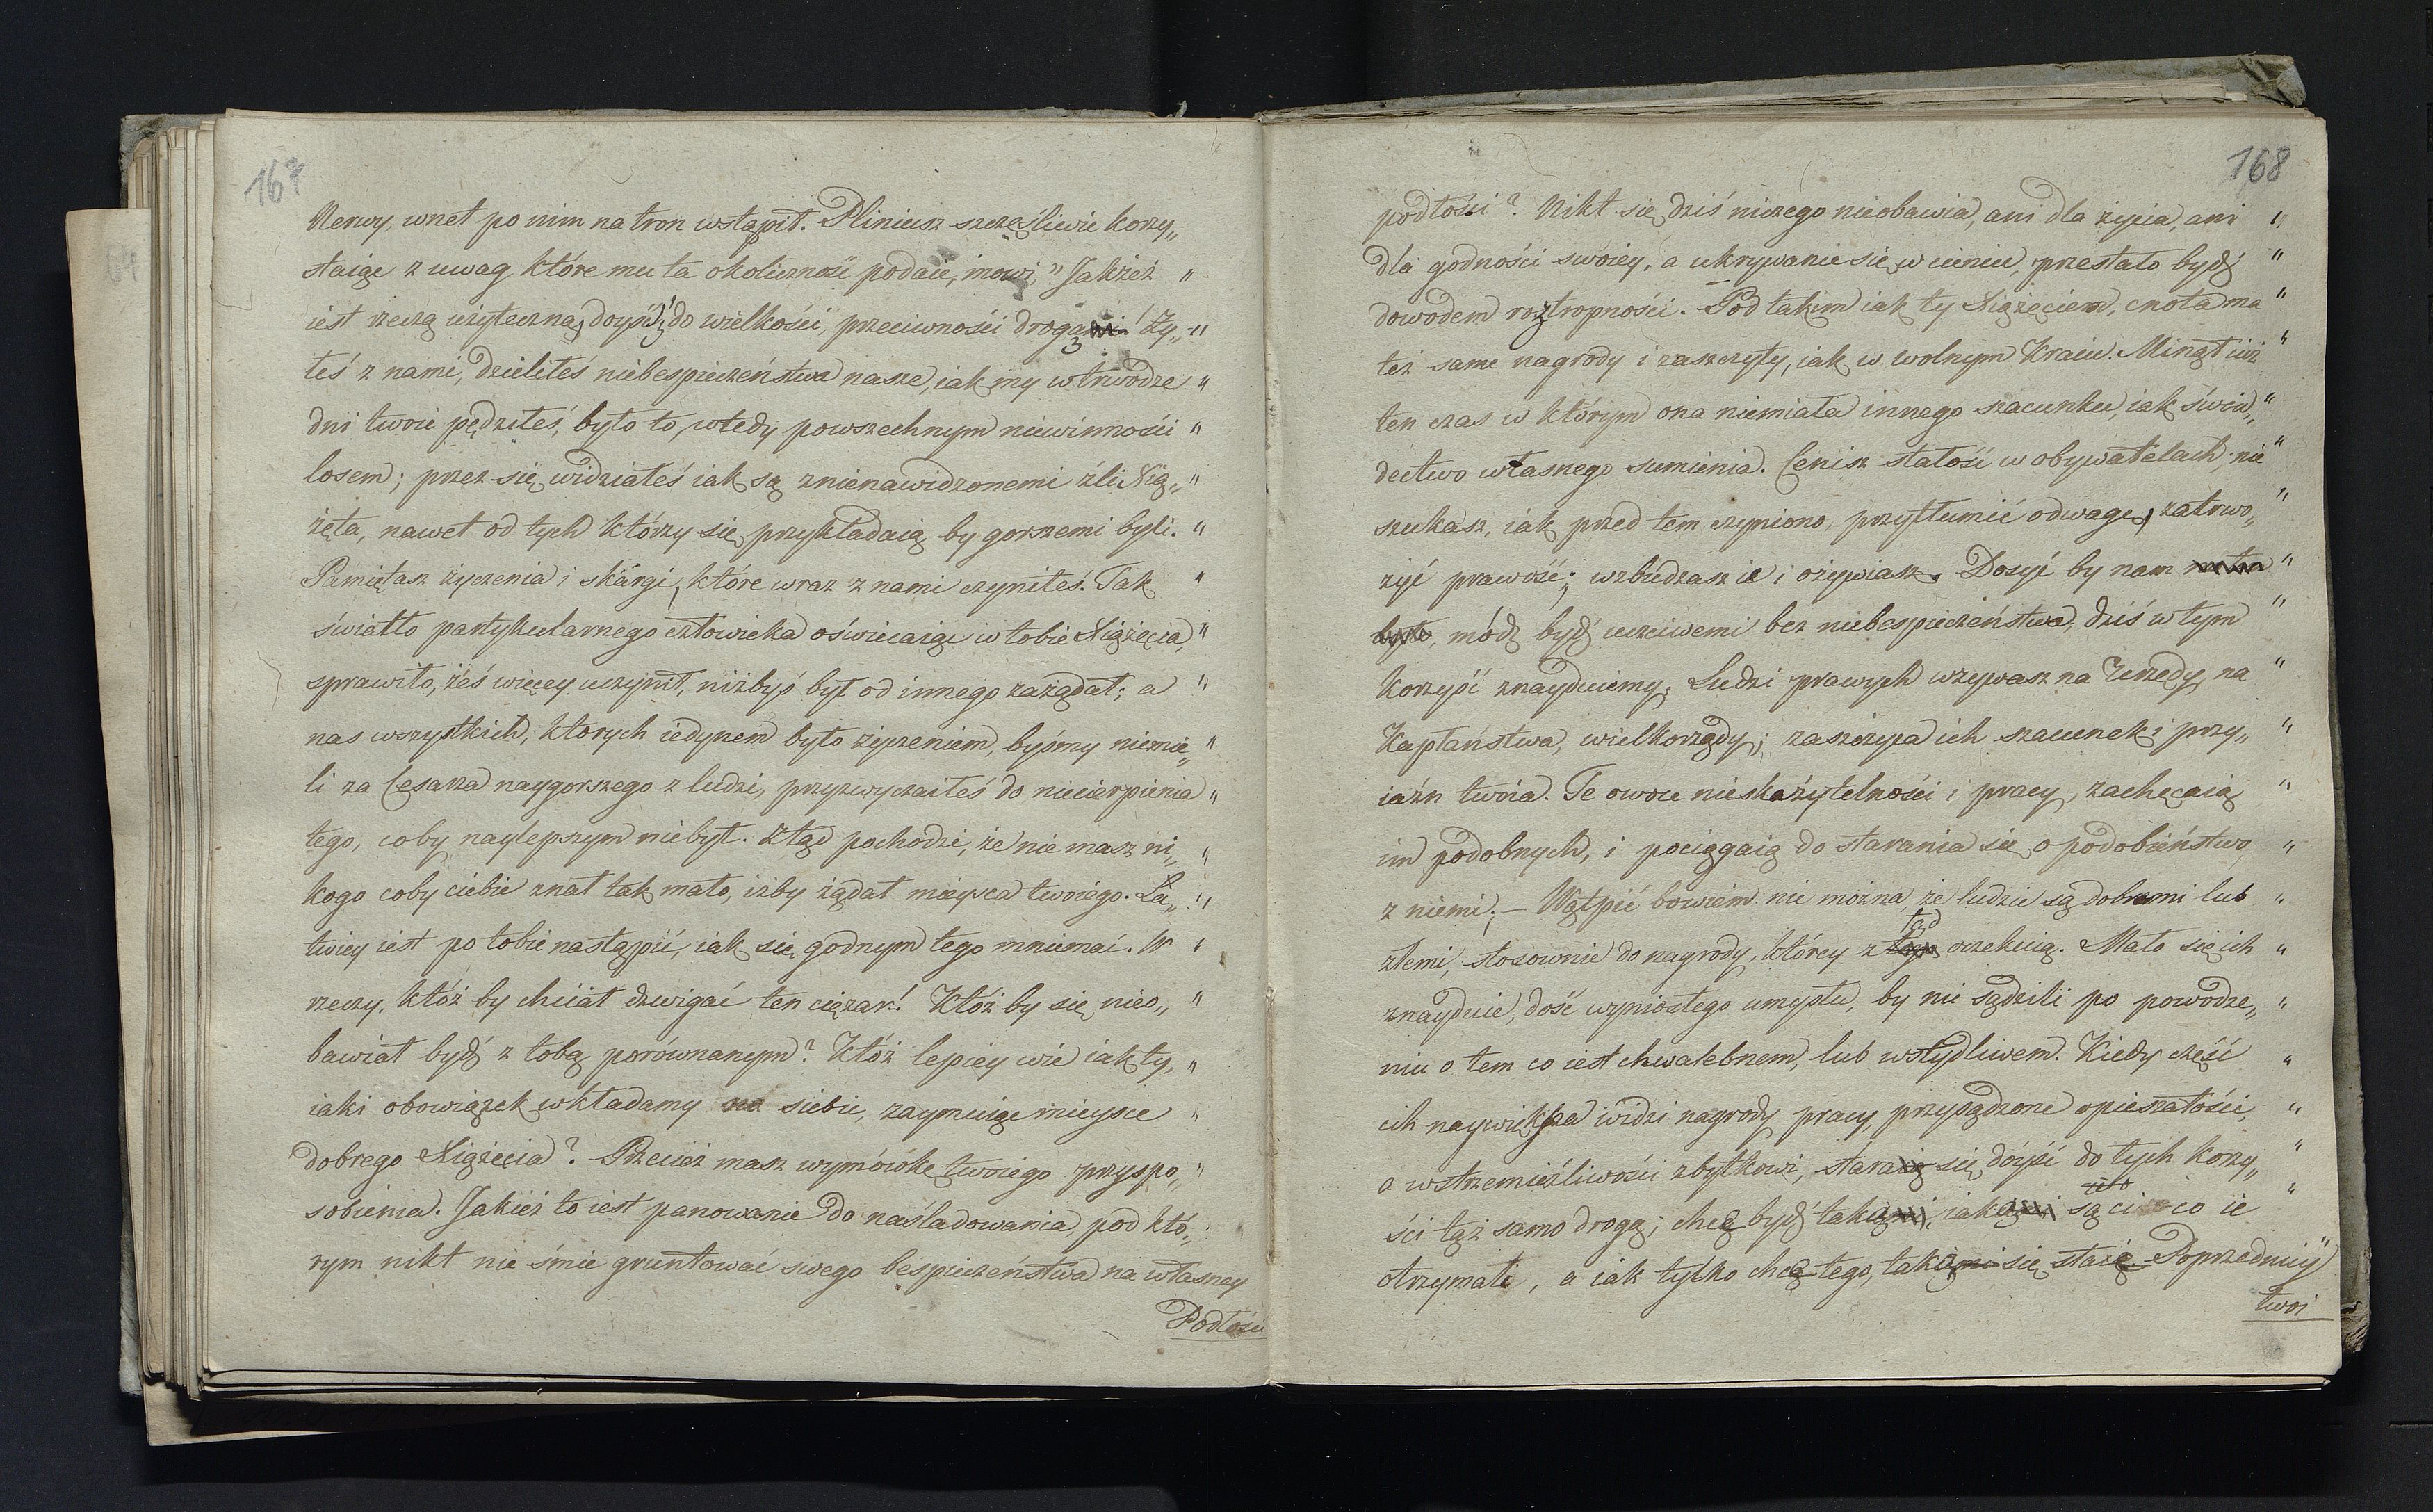 167
Nerwy, wnet po nim na tron wstąpił. Pliniusz szczęśliwie korzy„
staiąc z uwag które mu ta okoliczność podaie, mowi „ Jakież "
iest rzeczą użyteczną, doyść do wielkości, przeciwności drogą! Ży„ "
łeś z nami, dzieliłeś niebespieczeństwa nasze, iak my w trwodze "
dni twoie pędziłeś, było to, wtedy powszechnym niewinności "
losem; przez się widziałeś iak są znienawidzonemi źli Xią„ "
żęta, nawet od tych którzy się przykładaią by gorszemi byli. "
Pamiętasz życzenia i skargi, które wraz z nami czyniłeś. Tak "
światło partykularnego człowieka oświecaiąc w tobie Xiążęcia, "
sprawiło, żeś więcey uczynił, niżbyś był od innego zażądał; a "
nas wszystkich, ktorych iedynem było życzeniem, byśmy niemie„ "
li za Cesarza naygorszego z ludzi, przyzwyczaiłeś do niecierpienia "
tego, coby naylepszym niebył. Ztąd pochodzi, że nie masz ni„ "
kogo coby ciebie znał tak mało, iżby żądał mieysca twoiego. Ła„ "
twiey iest po tobie nastąpić, iak się godnym tego mniemać. W "
rzeczy, któż by chciał dzwigać ten ciężar! Któż by się nieo„ "
bawiał bydź z tobą porównanym? Któż lepiey wie iak ty, "
iaki obowiązek wkładamy na siebie, zaymuiąc mieysce "
dobrego Xiążęcia? Przecież masz wymówkę twoiego przyspo„ "
sobienia. Jakież to iest panowanie do naśladowania, pod któ„
rym nikt nie śmie gruntować swego bespieczeństwa na własney
Podłości
168
podłości? Nikt się dziś niczego nieobawia, ani dla życia, ani "
dla godności swoiey, a ukrywanie się w cieniu, przestało bydź "
dowodem roztropności. Pod takim iak ty Xiążęciem, cnota ma "
też same nagrody i zaszczyty, iak w wolnym Kraiu. Minął iuż "
ten czas w którym ona niemiała innego szacunku, iak świa„ "
dectwo własnego sumienia. Cenisz stałość w obywatelach; nie "
szukasz, iak przed tem czyniono, przytłumić odwagę, zatrwo„ "
żyć prawość; wzbudzasz ie i ożywiasz. Dosyć by nam "
było, módz bydź uczciwemi bez niebespieczeństwa, dziś w tym "
korzyść znayduiemy. Ludzi prawych wzywasz na Urzędy, na "
Kapłaństwa, wielkorządy; zaszczyca ich szacunek i przy„ "
iaźn twoia. Te owoce nieskażytelności i pracy, zachęcaią "
im podobnych, i pociągaią do starania się o podobieństwo "
z niemi; – Wątpić bowiem nie można, że ludzie są dobremi lub "
tąd
złemi, stosownie do nagrody, którey z oczekuią. Mało się ich "
znayduie, dość wyniosłego umysłu, by nie sądzili po powodze„ "
niu o tem co iest chwalebnem, lub wstydliwem. Kiedy część "
ich naywiększa widzi nagrody pracy, przysądzone opieszałości, "
a wstrzemięźliwości zbytkowi, staraią się doyść do tych korzy„ "
ści tąż samo drogą; chcą bydź takami, iakami są ci co ie "
otrzymali, a iak tylko chcą tego, takiemi się staią. Poprzedniey
twoi